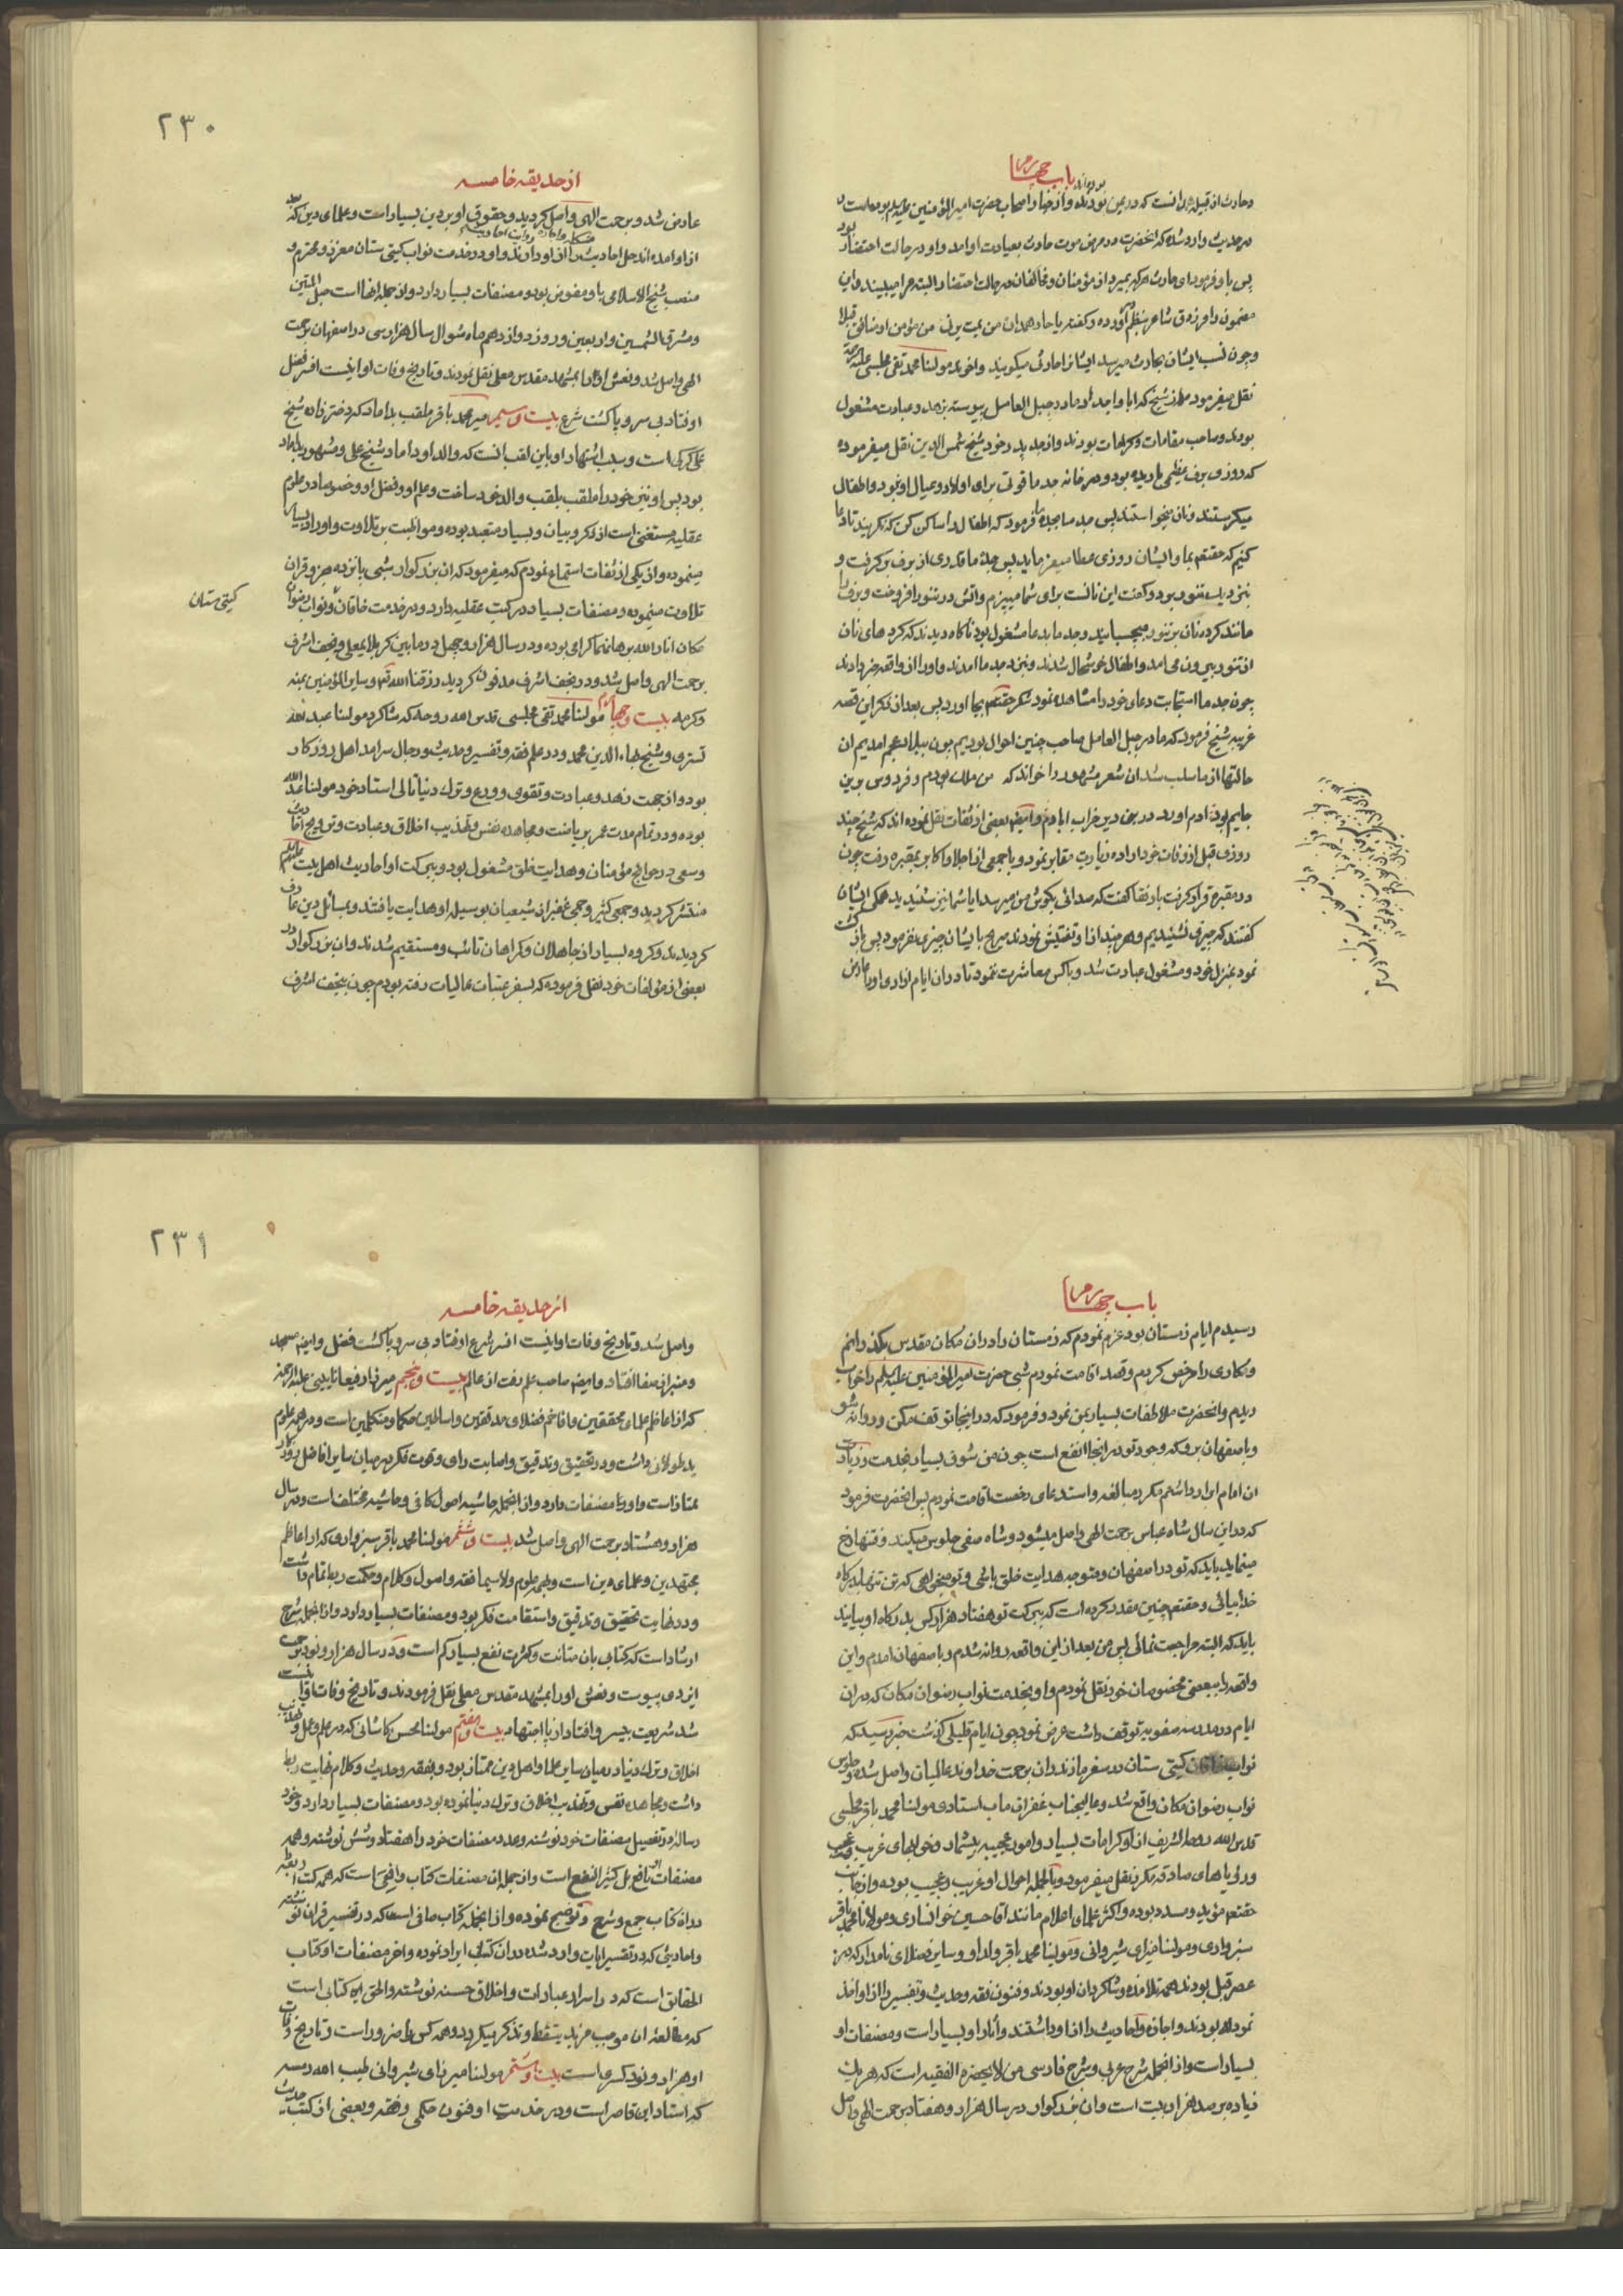 باب چهارم
وحارث از قبیله همدانست که در یمن بوده‌اند و از خیار اصحاب حضرت امیر المؤمنین علیه السلم بود
در حدیث وارد شده که آنحضرت در مرض موت حارث بعیادت او آمد و او در حالت احتضار بود
پس باو فرمود ای حارث هرکه بمیرد از مؤمنان و مخالفان در حالت احتضار البته مرا میبیند و این
مضمون را فرزدق شاعر بنظم آورده و گفته یا حار همدان من یمت یرنی من مؤمن او منافق قبلا
و چون نسب ایشان بحارث میرسد ایشانرا حارثی میگویند و اخوند مولنا محمد تقی مجلسی علیه الرحمة
نقل میفرمود از شیخ که ابا و اجداد ما در جبل العامل پیوسته بزهد و عبادت مشغول
بودند و صاحب مقامات و کرامات بودند و از جد پدر خود شیخ شمس الدین نقل میفرموده
که روزی برف عظیمی باریده بود و در خانه جد ما قوتی برای اولاد و عیال او نبود و اطفال
میگریستند و نان میخواستند پس جد ما بجده ما فرمود که اطفال را ساکن کن که نگریند تا دعا
کنیم که حقتعم بما و ایشان روزی عطا میفرماید پس جدهٔ ما قدری از برف برگرفت و
بنزدیک تنور برد و گفت این نانست برای شما میپزم و آتش در تنور افروخت و برف را
مانند کرده نان بر تنور میچسبانید و جد ما بدعا مشغول بود ناگاه دیدند که گرده‌های نان
از تنور بیرون می‌آمد و اطفال خوشحال شدند و بنزد جد ما آمدند و او را از واقعه خبر دادند
چون جد ما استجابت دعای خود را مشاهده نمود شکر حقتعم بجا آورد پس بعد از ذکر این قصه
غریبه شیخ فرمود که ما در جبل العامل صاحب چنین احوال بودیم چون ببلاد عجم آمدیم آن
حالتها از ما سلب شد آن شعر مشهور را خواند که من ملک بودم و فردوس برین
جایم بود آدم آورد در این دیر خراب آبادم و ایضم بعضی از ثقات نقل نموده‌اند که شیخ چند
روزی قبل از وفات خود اراده زیارت مقابر نمود و با جمعی از اجلا و اکابر بمقبره رفت چون
در مقبره قرار گرفت با رفقا گفت که صدائی بگوش من میرسد ایا شما نیز شنیدید همگی ایشان
گفتند که چیزی نشنیدیم و هر چند از او تفتیش نمودند صریح بایشان چیزی نفرمود پس بازگشت
نمود بمنزل خود و مشغول عبادت شد و با کس معاشرت ننمود تا در آن ایام آزاری او را عارض
۲۳۰
از حدیقه خامسه
عارض شد و برحمت الهی واصل گردید و حقوق او بر دین بسیار است و علمای دین که بعد
از او آمده‌اند جل احادیث را از او دارند و او در خدمت نواب گیتی ستان معزز و محترم و
منصب شیخ الاسلامی باو مفوض بود و مصنفات بسیار دارد و از جمله انها است حبل المتین
و مشرق الشمسین و اربعین و روز دوازدهم ماه شوال سال هزار و سی در اصفهان برحمت
الهی واصل شد و نعش او را بمشهد مقدس معلی نقل نمودند و تاریخ وفات او اینست افسر فضل
اوفتاد بی سر و پا گشت شرع بیست و سیم میر محمد باقر ملقب بداماد که دختر زاده شیخ
علی کرکی است و سبب اشتهار او باین لقب انست که والد او داماد شیخ علی و مشهور بداماد
بود پس او نیز خود را ملقب بلقب والد خود ساخت و علم او و فضل او و خصوصا در علوم
عقلیه مستغنی است از ذکر و بیان و بسیار متعبد بوده و مواظبت بر تلاوت و اوراد بسیار
مینموده و از یکی از ثقات استماع نمودم که میفرمود که ان بزرگوار شبی پانزده جزو قران
تلاوت مینموده و مصنفات بسیار در کتب عقلیه دارد و در خدمت خاقان و نواب رضوان
گیتی ستان
مکان انار الله برهانهما گرامی بوده و در سال هزار و چهل در ما بین کربلای معلی و نجف اشرف
برحمت الهی واصل شد و در نجف اشرف مدفون گردید رزقنا الله تعم و سایر المؤمنین بمنه
و کرمه بیست و چهارم مولنا محمد تقی مجلسی قدس الله روحه که شاگرد مولنا عبد الله
تستری و شیخ بهاء الدین محمد و در علم فقه و تفسیر و حدیث و رجال سرامد اهل روزگار
بود و از جهت زهد و عبادت و تقوی و ورع و ترک دنیا تالی استاد خود مولنا عبد الله
بوده و در تمام مدت عمر بریاضت و مجاهده نفس و تهذیب اخلاق و عبادت و ترویج احادیث
و سعی در حوائج مؤمنان و هدایت خلق مشغول بود و ببرکت او احادیث اهل بیت علیهم السلم
منتشر گردید و جمعی کثیر و جمی غفیر از شیعیان بوسیله او هدایت یافتند و بمسائل دین عارف
گردیدند و گروه بسیار از جاهلان و گمراهان تائب و مستقیم شدند و ان بزرگوار در
بعضی از مؤلفات خود نقل فرموده که بسفر عتبات عالیات رفته بودم چون بنجف اشرف
باب چهارم
رسیدم ایام زمستان بود عزم نمودم که زمستان را در ان مکان مقدس بگذرانم
و مکاری را مرخص کردم و قصد اقامت نمودم شبی حضرت امیر المؤمنین علیه السلم را خواب
دیدم و انحضرت ملاطفات بسیار بمن نمود و فرمود که در اینجا توقف مکن و روانه شو
و باصفهان برو که وجود تو در انجا انفع است چون من شوق بسیار بخدمت و زیارت
ان امام ابرار داشتم مکرر مبالغه و استدعای رخصت اقامت نمودم پس انحضرت فرمود
که در این سال شاه عباس برحمت الهی واصل میشود و شاه صفی جلوس میکند و فتنها رخ
مینماید باید که تو در اصفهان و متوجه هدایت خلق باشی و تو میخواهی که تن تنها بدرگاه
خدا بیائی و حقتعم چنین مقدر کرده است که ببرکت تو هفتاد هزار کس بدرگاه او بیایند
باید که البته مراجعت نمائی پس من بعد از این واقعه روانه شدم و باصفهان آمدم و این
واقعه را ببعضی مخصوصان خود نقل نمودم و او بخدمت نواب رضوان مکان که در ان
ایام در مدرسه صفویه توقف داشت عرض نمود چون ایام قلیلی گذشت خبر رسید که
نواب خاقان گیتی ستان در سفر مازندران برحمت خداوند عالمیان واصل شده و جلوس
نواب رضوان مکان واقع شد و عالیجناب غفران ماب استادی مولنا محمد باقر مجلسی
قدس الله روحه الشریف از او کرامات بسیار و امور عجیبه بیشمار و خوابهای غریب و عجیب
و رؤیاهای صادقه مکرر نقل میفرمود و بالجمله احوال او غریب و عجیب بوده و از جانب
حقتعم مؤید و مسدد بوده و اکثر علمای اعلام مانند آقا حسین خوانساری و مولانا محمد باقر
سبزواری و مولنا میرزای شیروانی و مولینا محمد باقر ولد او و سایر فضلای نامدار که در
عصر قبل بودند همه تلامذه و شاگردان او بودند و فنون فقه و حدیث و تفسیر را از او اخذ
نموده بودند و اجازه احادیث را از او داشتند و آثار او بسیار است و مصنفات او
بسیار است و از انجمله شرح عربی و شرح فارسی من لا یحضره الفقیه است که هر یک
زیاده بر صد هزار بیت است و ان بزرگوار در سال هزار و هفتاد برحمت الهی واصل
۲۳۱
از حدیقه خامسه
واصل شد و تاریخ وفات او اینست افسر شرع اوفتاد بی سر و پا گشت فضل و ایضم مسجد
و منبر از صفا افتاد و ایضم صاحب علم رفت از عالم بیست و پنجم میرزا رفیعا نایینی علیه الرحمة
که از اعاظم علمای محققین و افاخم فضلای مدققین و اساطین حکما و متکلمین است و در همه علوم
ید طولائی داشت و در تحقیق و تدقیق و اصابت رای و قوت فکر در میان سایر افاضل روزگار
ممتاز است و او را مصنفات دارد و از انجمله حاشیه اصول کافی و حاشیه مختلف است و در سال
هزار و هشتاد برحمت الهی واصل شد بیست و ششم مولنا محمد باقر سبزواری که از اعاظم
مجتهدین و علمای دین است و بهمه علوم و لا سیما فقه و اصول و کلام و حکمت ربط تمام داشت
و در غایت تحقیق و تدقیق و استقامت فکر بود و مصنفات بسیار دارد و از انجمله شرح
ارشاد است که کتابی بان متانت و کثرت نفع بسیار کم است و در سال هزار و نود برحمت
ایزدی پیوست و نعش او را بمشهد مقدس معلی نقل فرمودند و تاریخ وفات او اینست
شد شریعت بیسر و افتاد از پا اجتهاد بیست و هفتم مولنا محسن کاشانی که در علم و عمل و تهذیب
اخلاق و ترک دنیا در میان سایر علما و اهل دین ممتاز بود و بفقه و حدیث و کلام نهایت ربط
داشت و مجاهده نفس و تهذیب اخلاق و ترک دنیا نموده بود و مصنفات بسیار دارد و خود
رساله در تفصیل مصنفات خود نوشته و عدد مصنفات خود را هفتاد و شش نوشته و همه
مصنفات او نافع بل کثیر النفع است و از جمله ان مصنفات کتاب وافی است که همه کتب اربعه
در ان کتاب جمع و شرح و توضیح نموده و از انجمله کتاب صافی است که در تفسیر قران نوشته
و احادیثی که در تفسیر ایات وارد شده در ان کتاب ایراد نموده و اخر مصنفات او کتاب
الحقایق است که در اسرار عبادات و اخلاق حسنه نوشته و الحق این کتابی است
که مطالعه ان موجب مزید تیقظ و تذکر میگردد و همه کس را ضرور است و تاریخ وفات
او هزار و نود کسری است بیست و هشتم مولنا میرزای شیروانی طیب الله رمسه
که استاد این قاصر است و در خدمت او فنون حکمی و فقه و بعضی از کتب حدیث